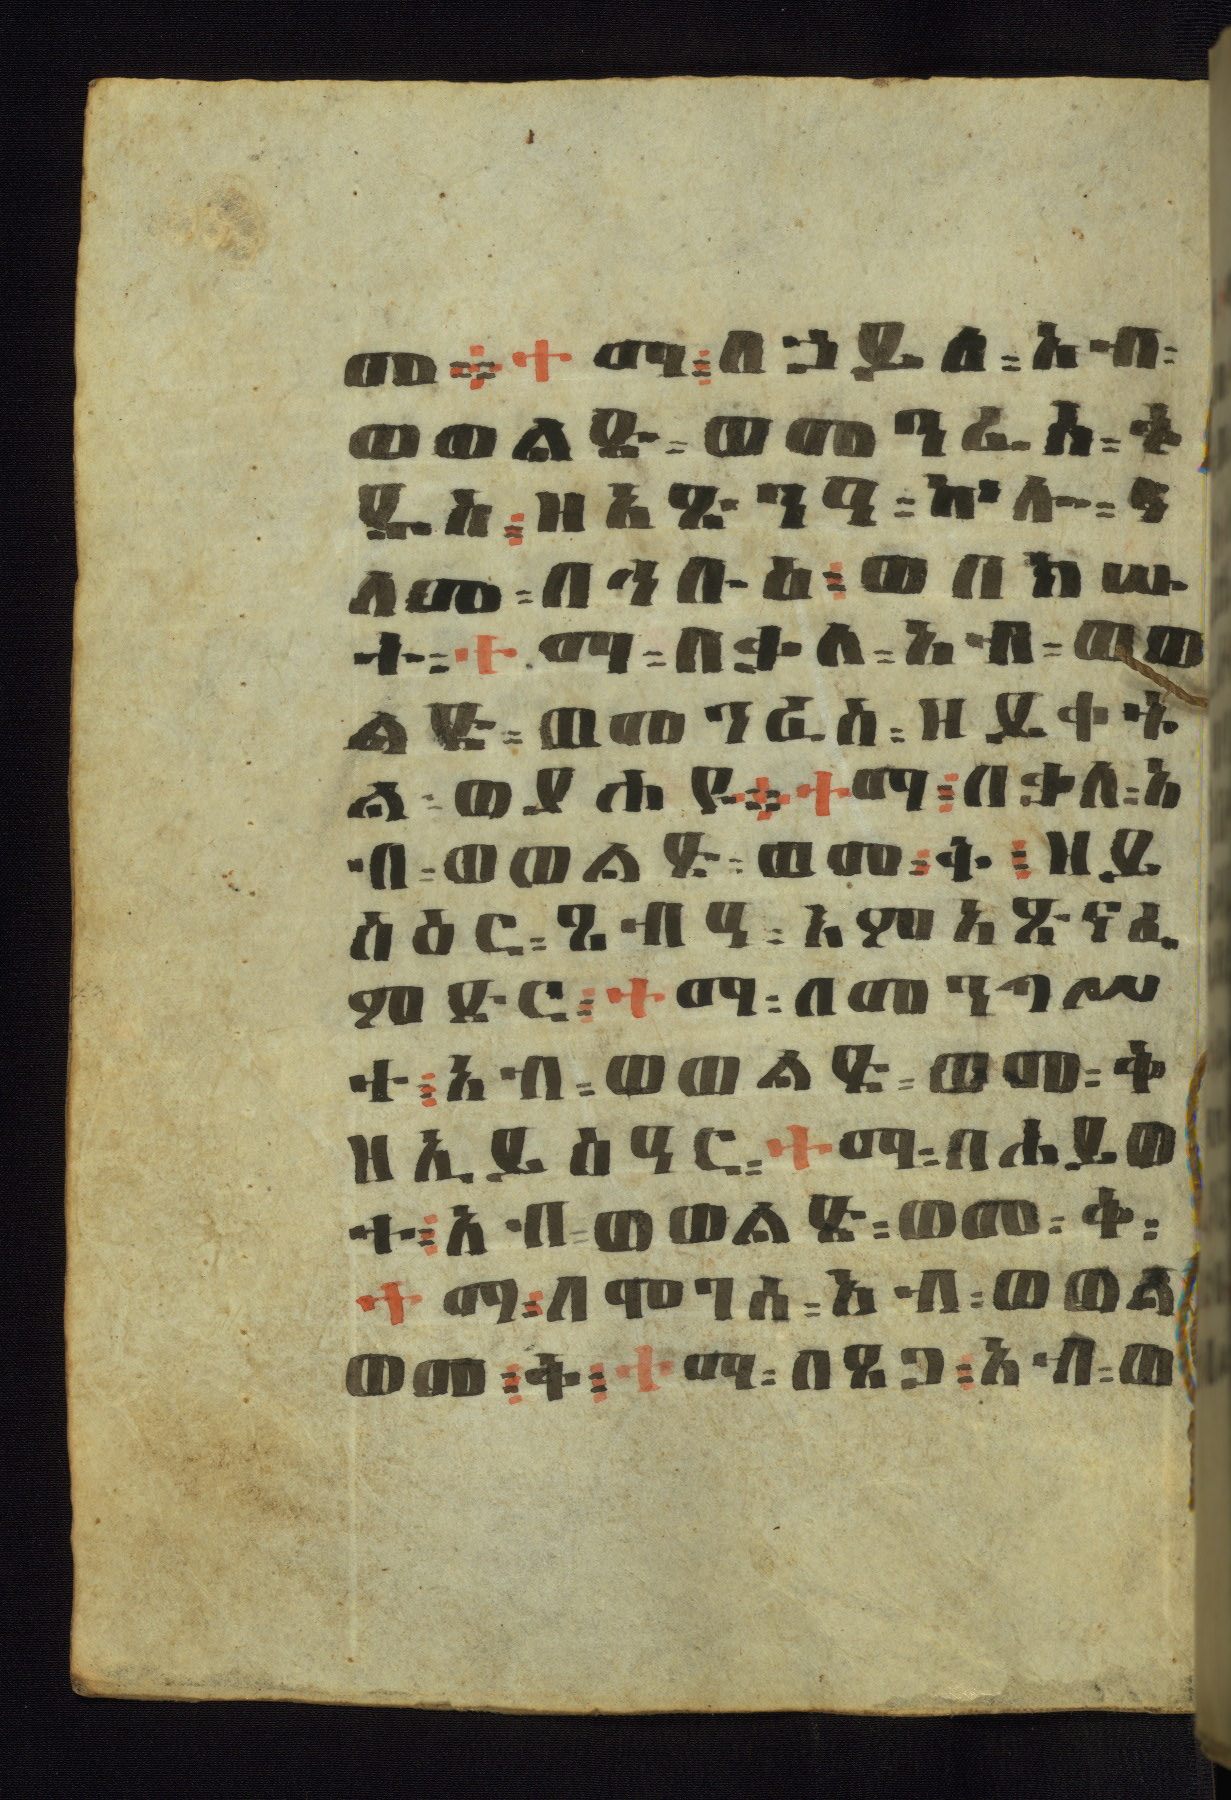 መ፨ ተማ፡ በኃይለ፡ አብ፡
ወወልድ፡ ወመንፈስ፡ ቅ
ዱስ፡ ዘአጽንዓ፡ ኵሎ፡ ዓ
ለመ፡ በኅቡእ፡ ወበክሡ
ት፡ ተማ፡ በቃለ፡ አብ፡ ወወ
ልድ፡ ወመንፈስ፡ ዘይቀት
ል፡ ወያሐዩ፨ ተማ፡ በቃለ፡ አ
ብ፡ ወወልድ፡ ወመ፡ ቅ፡ ዘይ
ስዕር፡ ጸብዓ፡ እምአጽናፈ
ምድር፡ ተማ፡ በመንግሥ
ተ፡ አብ፡ ወወልድ፡ ወመ፡ ቅ
ዘኢይስዓር፡ ተማ፡ በሕይወ
ተ፡ አብ፡ ወወልድ፡ ወመ፡ ቅ፡
ተማ፡ በሞገሰ፡ አብ፡ ወወል
ወመ፡ ቅ፡ ተማ፡ በጸጋ፡ አብ፡ ወ